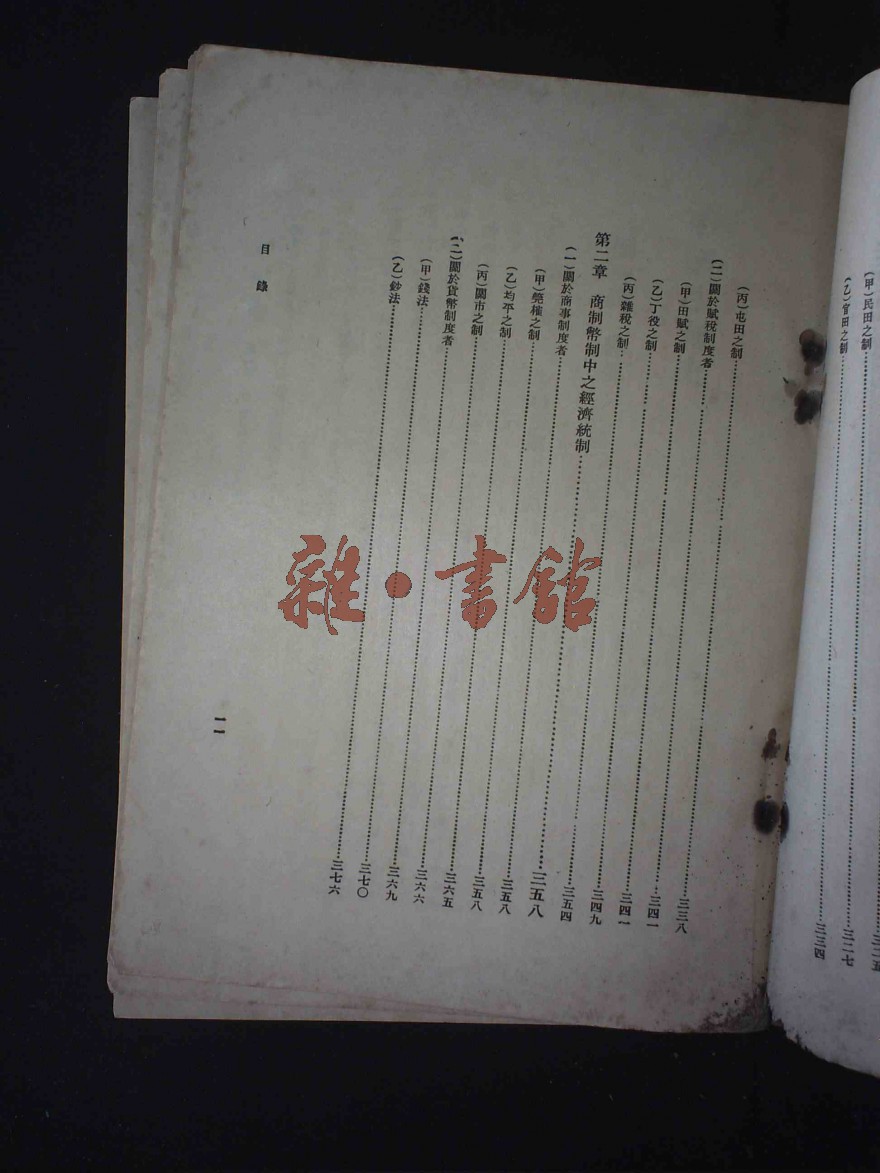 三二五
(甲)民田之制……三二七
(乙)官田之制……三三四
(丙)屯田之制……三三八
(二)關於賦稅制度者……三四一
(甲)田賦之制……三四一
(乙)丁役之制……三四九
(丙)雜稅之制……三五四
第二章 商制幣制中之經濟統制……三五八
(一)關於商事制度者……三五八
(甲)筦榷之制……三五八
(乙)均平之制……三六五
(丙)關市之制……三六六
(二)關於貨幣制度者……三六九
(甲)錢法……三七〇
(乙)鈔法……三七六
目錄
一一
雜·書館